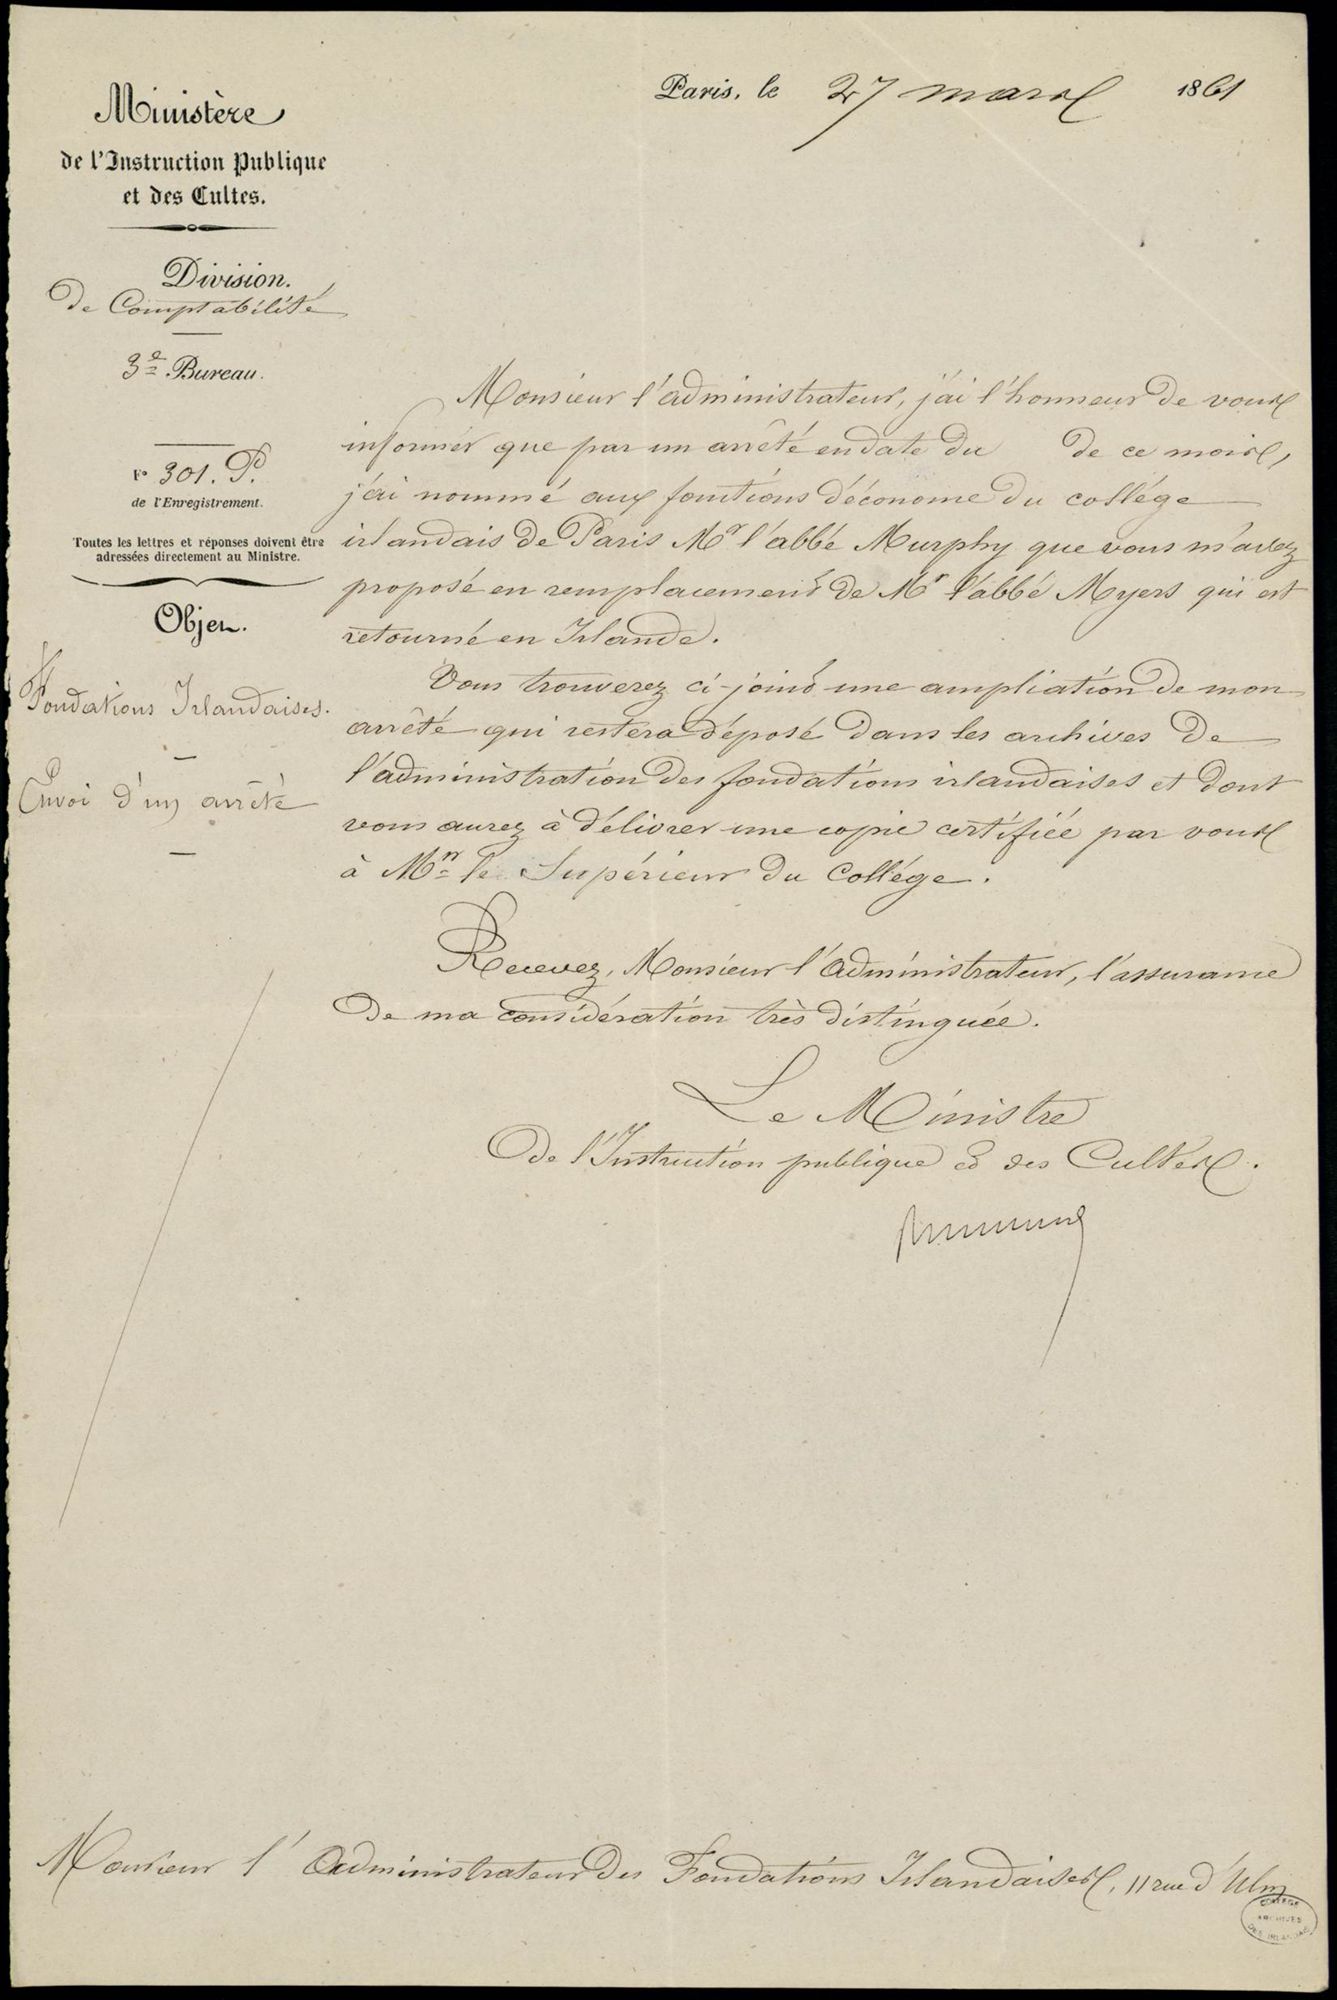 Ministère
de l'Instruction Publique
et des Cultes.
Division.
de Comptabilité
3e Bureau.
No 301. P.
de l'Enregistrement.
Toutes les lettres et réponses doivent être
adressées directement au Ministre.
Objet.
Fondations Irlandaises.
Envoi d'un arrêté
Paris, le 27 mars 1861
Monsieur l'administrateur, j'ai l'honneur de vous
informer que par un arrêté en date du de ce mois,
j'ai nommé aux fonctions d'économe du collége
irlandais de Paris Mr l'abbé Murphy que vous m'avez
proposé en remplacement de Mr l'abbé Myers qui est
retourné en Irlande.
Vous trouverez ci-joint une ampliation de mon
arrêté qui restera déposé dans les archives de
l'administration des fondations irlandaises et dont
vous aurez à délivrer une copie certifiée par vous
à Mr le Supérieur du Collége.
Recevez, Monsieur l'Administrateur, l'assurance
de ma considération très distinguée.
Le Ministre
de l'Instruction publique et des Cultes.
Monsieur l'Administrateur des Fondations Irlandaises, 11 rue d'Ulm
COLLEGE
ARCHIVES
DES IRLANDAIS